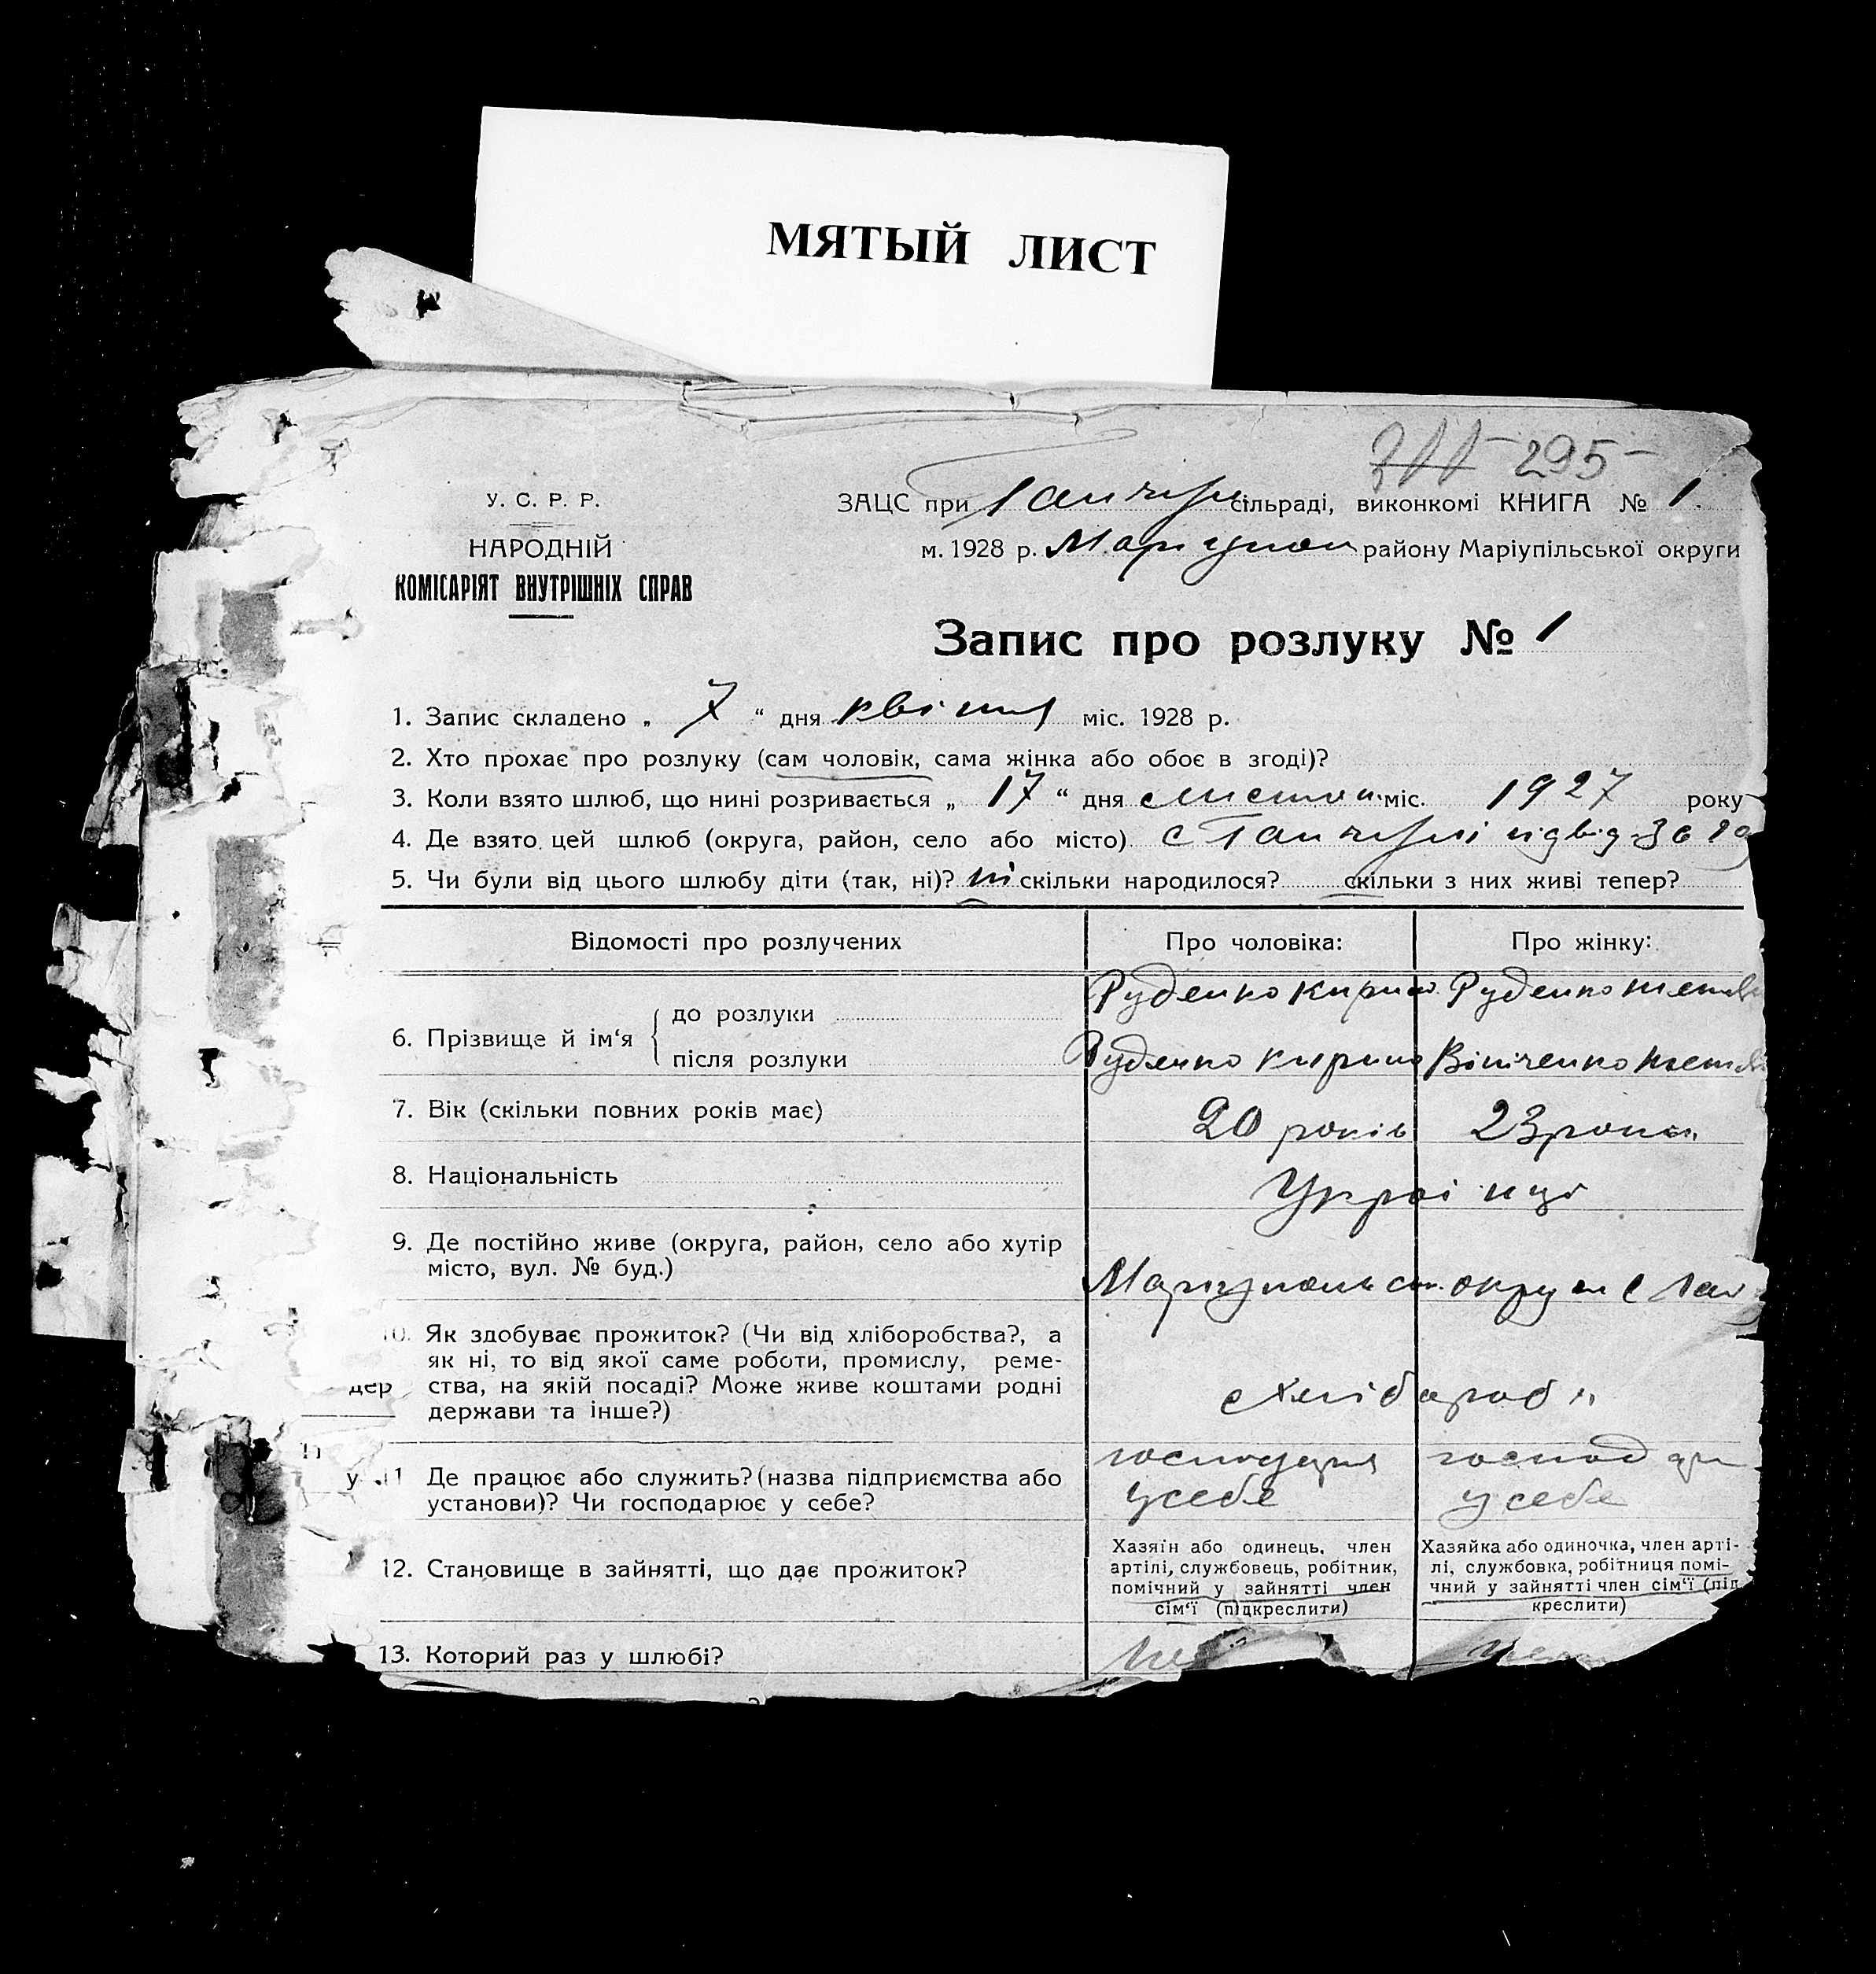 МЯТЫЙ ЛИСТ
295
У. С. Р. Р.
НАРОДНІЙ
КОМІСАРІЯТ ВНУТРІШНІХ СПРАВ
ЗАЦС при сільраді, виконкомі КНИГА № 1.
м. 1928 р. Маріупол районy Маріупільської округи
Запис про розлуку № 1
1. Запис складено „ 7 “ дня квітня міс. 1928 р.
2. Хто прохає про розлуку (сам чоловік, сама жінка або обоє в згоді)?
3. Коли взято шлюб, що нині розривається „ 17 “ дня листоп. міс. 1927 року
4. Де взято цей шлюб (округа, район, село або місто) с
5. Чи були від цього шлюбу діти (так, ні)? ні скільки народилося? скільки з них живі тепер?
Відомості про розлучених Про чоловіка: Про жінку:
6. Прізвище й ім‘я
до розлуки Руденко Кирило Руденко
після розлуки Руденко Кирило Вініченко
7. Вік (скільки повних років має) 20 років 23 роки
8. Національність Украінці
9. Де постійно живе (округа, район, село або хутір
місто, вул. № буд.) Маріупольськ. округи с
10. Як здобуває прожиток? (Чи від хліборобства?, а
як ні, то від якої саме роботи, промислу, реме-
дер ства, на якій посаді? Може живе коштами родні
держави та інше?) Хлібороб
11 Де працює або служить? (назва підприємства або
установи)? Чи господарює у себе?
у себе у себе
12. Становище в зайнятті, що дає прожиток?
Хазяїн або одинець, член
артілі, службовець, робітник,
помічний у зайнятті член
сім‘ї (підкреслити)
Хазяйка або одиночка, член арті-
лі, службовка, робітниця помі-
чний у зайнятті член сім‘ї (під
креслити)
13. Которий раз у шлюбі?